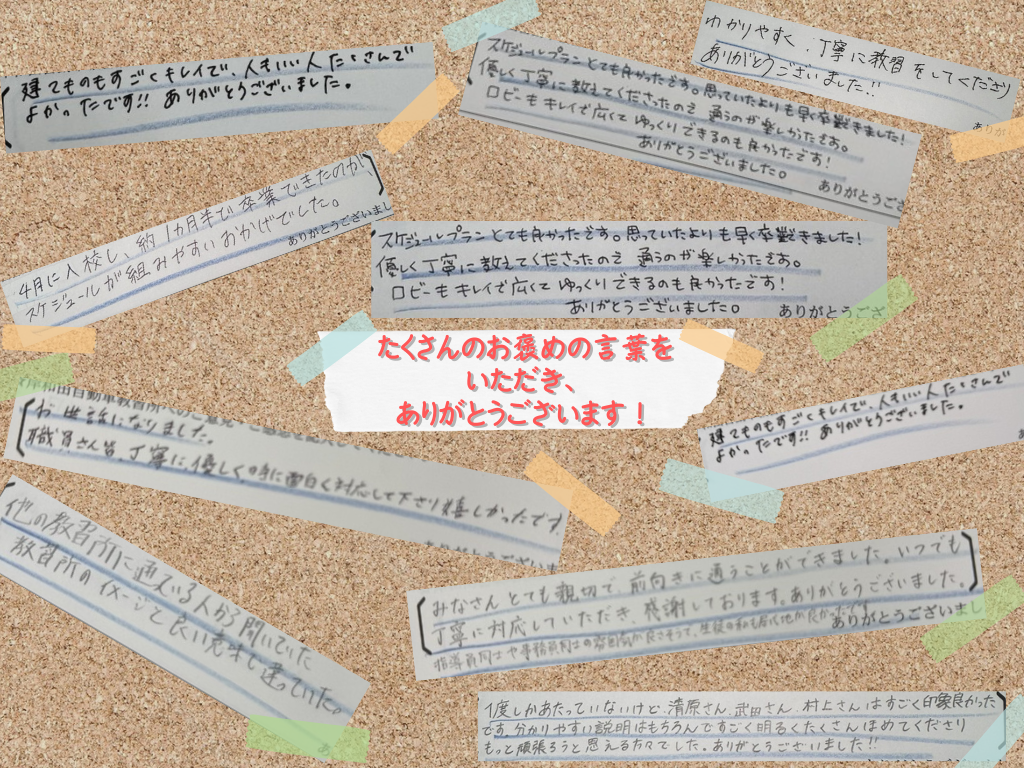 建てものもすごくキレイで、人もいい人たくさんで
よかったです!! ありがとうございました。
スケジュールプランとても良かったです。思っていたよりも早く卒業できました!
優しく丁寧に教えてくださったので 通うのが楽しかたです。
ロビーもキレイで広くて ゆっくりできるのも良かったです!
ありがとうございました。
ありがとうござ
わかりやすく、丁寧に教習をしてくださり
ありがとうございました!!
ありが
4月に入校し、約1カ月半で卒業できたのが
スケジュールが組みやすいおかげでした。
ありがとうございまし
スケジュールプランとても良かったです。思っていたよりも早く卒業できました!
優しく丁寧に教えてくださったので 通うのが楽しかたです。
ロビーもキレイで広くて ゆっくりできるのも良かったです!
ありがとうございました。
ありがとうござ
たくさんのお褒めの言葉を
いただき、
ありがとうございます!
お世話になりました。
職員さん皆、丁寧に優しく時に面白く対応して下さり嬉しかったです
ありがとうございま
建てものもすごくキレイで、人もいい人たくさんで
よかったです!! ありがとうございました。
他の教習所に通っている人から聞いていた
教習所のイメージと良い意味で違っていた。
みなさんとても親切で、前向きに通うことができました。いつでも
丁寧に対応していただき、感謝しております。ありがとうございました。
ありがとうございまし
1度しかあたっていないけど、清原さん、武田さん、村上さんはすごく印象良かった
です。分かりやすい説明はもちろんですごく明るくたくさんほめてくださり
もっと頑張ろうと思える方々でした。ありがとうございました!!